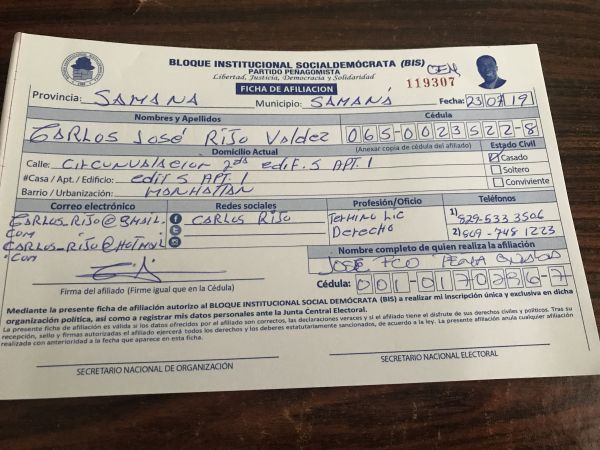 BLOQUE INSTITUCIONAL SOCIALDEMÓCRATA (BIS)
PARTIDO PEÑAGOMISTA
Libertad, Justicia, Democracia y Solidaridad
FICHA DE AFILIACION
CEN
119307
Provincia: SAMANA Municipio: SAMANÁ Fecha: 23/07/19
Nombres y Apellidos Cédula
CARLOS José RIJO Valdez 065-0023522-8
Domicilio Actual (Anexar copia de cédula del afiliado) Estado Civil
Calle: CIRCUNVALACION 2da edif. 5 APT. 1 Casado
#Casa / Apt. / Edificio: edif 5 APT. 1 Soltero
Barrio / Urbanización: MANHATTAN Conviviente
Correo electrónico Redes sociales Profesión/Oficio Teléfonos
CARLOS_RIJO@GMAIL.COM CARLOS RIJO TERMINO LIC Derecho 1) 829-533 3506
CARLOS_RIJO@HOTMAIL.COM 2) 809-748 1223
Nombre completo de quien realiza la afiliación
JOSÉ FCO PEÑA
Firma del afiliado (Firme igual que en la Cédula) Cédula: 001-0170396-7
Mediante la presente ficha de afiliación autorizo al BLOQUE INSTITUCIONAL SOCIAL DEMÓCRATA (BIS) a realizar mi inscripción única y exclusiva en dicha
organización política, así como a registrar mis datos personales ante la Junta Central Electoral.
La presente ficha de afiliación es válida si los datos ofrecidos por el afiliado son correctos, las declaraciones veraces y si el afiliado tiene el disfrute de sus derechos civiles y políticos. Tras su
recepción, sello y firmas autorizadas el afiliado ejercerá todos los derechos y los deberes estatutariamente sancionados, de acuerdo a la ley. La presente afiliación anula cualquier afiliación
realizada con anterioridad a la fecha que aparece en esta ficha.
SECRETARIO NACIONAL DE ORGANIZACIÓN SECRETARIO NACIONAL ELECTORAL